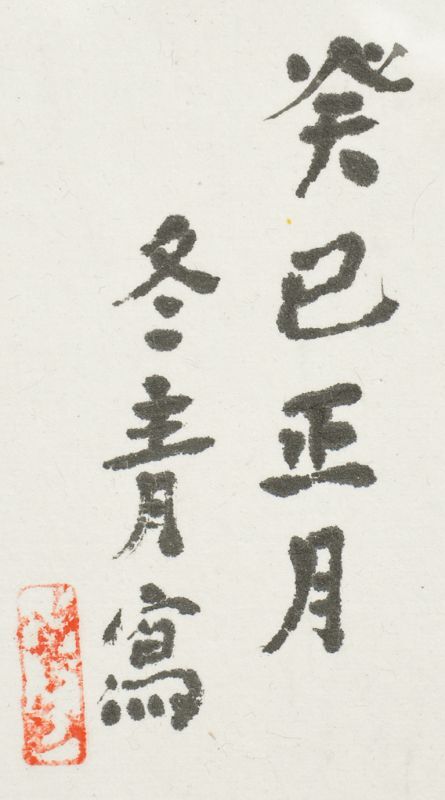 癸巳正月
冬青寫